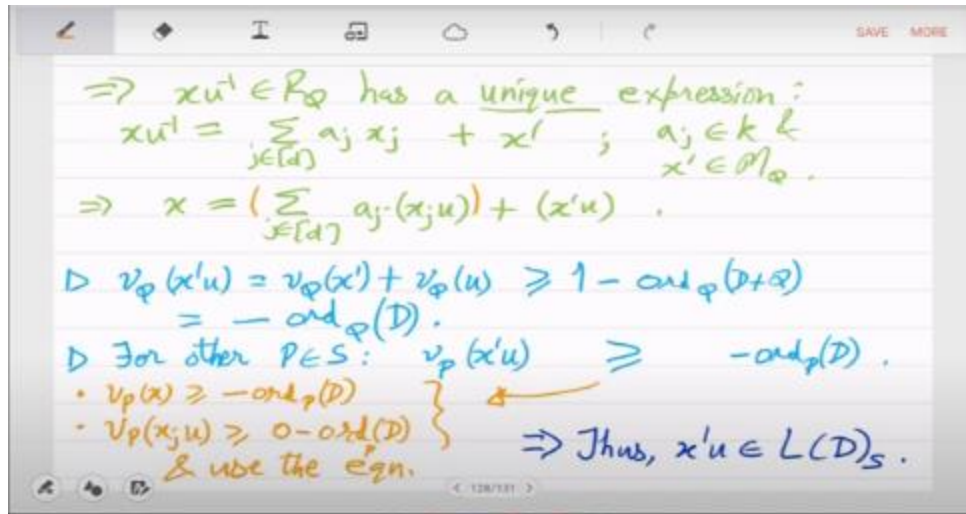 SAVE MORE
⇒ xu⁻¹ ∈ R_Q has a unique expression :
xu⁻¹ = Σ_{j∈[d]} a_j x_j + x' ; a_j ∈ k &
x' ∈ M_Q .
⇒ x = (Σ_{j∈[d]} a_j·(x_j u)) + (x'u) .
▷ v_Q(x'u) = v_Q(x') + v_Q(u) ⩾ 1 - ord_Q(D+Q)
= - ord_Q(D) .
▷ For other P∈S : v_P(x'u) ⩾ -ord_P(D) .
• v_P(x) ⩾ -ord_P(D)
• v_P(x_j u) ⩾ 0-ord_P(D)
& use the eqn.
⇒ Thus, x'u ∈ L(D)_S .
< 128/131 >